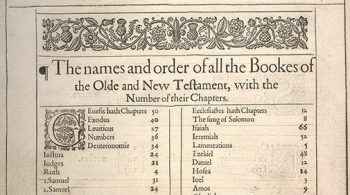 ¶ The names and order of all the Bookes of
the Olde and New Testament, with the
Number of their Chapters.
Genesis hath Chapters 50
Exodus 40
Leuiticus 27
Numbers 36
Deuteronomie 34
Ioshua 24
Iudges 21
Ruth 4
1.Samuel 31
2.Samuel 24
Ecclesiastes hath Chapters 12
The song of Solomon 8
Isaiah 66
Ieremiah 52
Lamentations 5
Ezekiel 48
Daniel 12
Hosea 14
Ioel 3
Amos 9